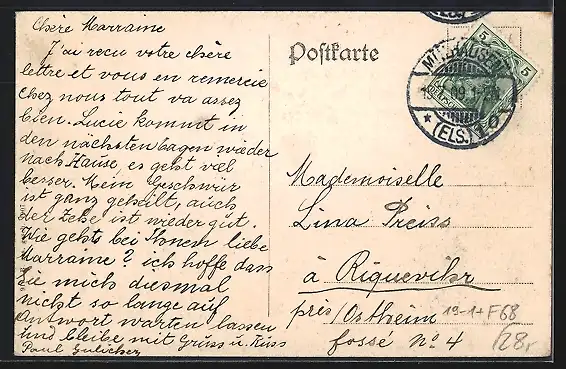 Chère Marraine
J'ai reçu votre chère
lettre et vous en remercie
Chez nous tout va assez
bien. Lucie kommt in
den nächsten Tagen wieder
nach Hause, es geht viel
besser. Mein Geschwür
ist ganz geheilt, auch
der Zehe ist wieder gut.
Wie gehts bei Ihnen liebe
Marraine? ich hoffe dass
Sie mich diesmal
nicht so lange auf
Antwort warten lassen
und bleibe mit Gruss u. Kuss
Paul
Postkarte
MÜLHAUSEN
(ELS.) 1 c
5
5
Mademoiselle
Lina Preiss
à Riquewihr
près/Ostheim
fossé No 4
19-1+F68